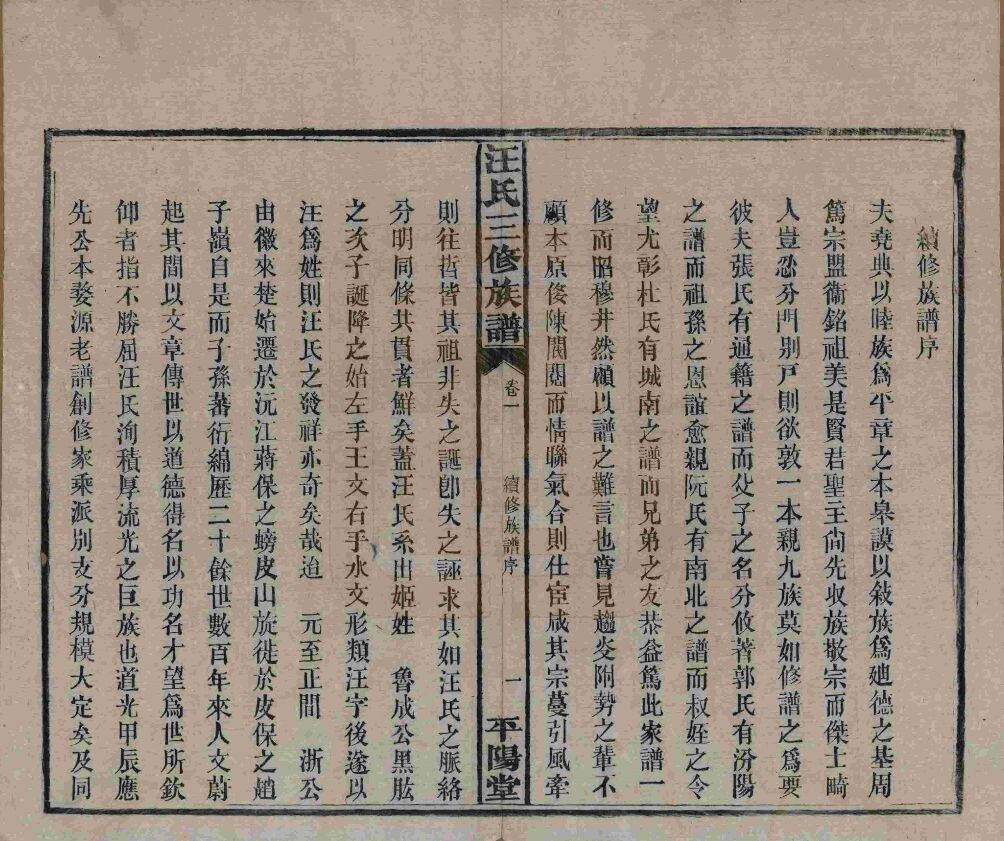 續修族譜序
夫堯典以睦族爲平章之本皋謨以敍族爲廸德之基周
篤宗盟衞銘祖美是賢君聖王尙先收族敬宗而傑士畸
人豈忍分門別戸則欲敦一本親九族莫如修譜之爲要
彼夫張氏有通籍之譜而父子之名分攸著郭氏有汾陽
之譜而祖孫之恩誼愈親阮氏有南北之譜而叔姪之令
望尤彰杜氏有城南之譜而兄弟之友恭益篤此家譜一
修而昭穆井然顧以譜之難言也嘗見趨炎附勢之輩不
顧本原俊陳閥閱而情聯氣合則仕宦咸其宗蔓引風牽
汪氏三修族譜
卷一
續修族譜序
一
平陽堂
則往哲皆其祖非失之誕卽失之誣求其如汪氏之脈絡
分明同條共貫者鮮矣蓋汪氏系出姬姓 魯成公黑肱
之次子誕降之始左手王文右手水文形類汪字後遂以
汪爲姓則汪氏之發祥亦奇矣哉迨 元至正間 浙公
由徽來楚始遷於沅江蔣保之螃皮山旋徙於皮保之趙
子嶺自是而子孫蕃衍綿歷二十餘世數百年來人文蔚
起其間以文章傳世以道德得名以功名才望爲世所欽
仰者指不勝屈汪氏洵積厚流光之巨族也道光甲辰應
先公本婺源老譜創修家乘派别支分規模大定矣及同